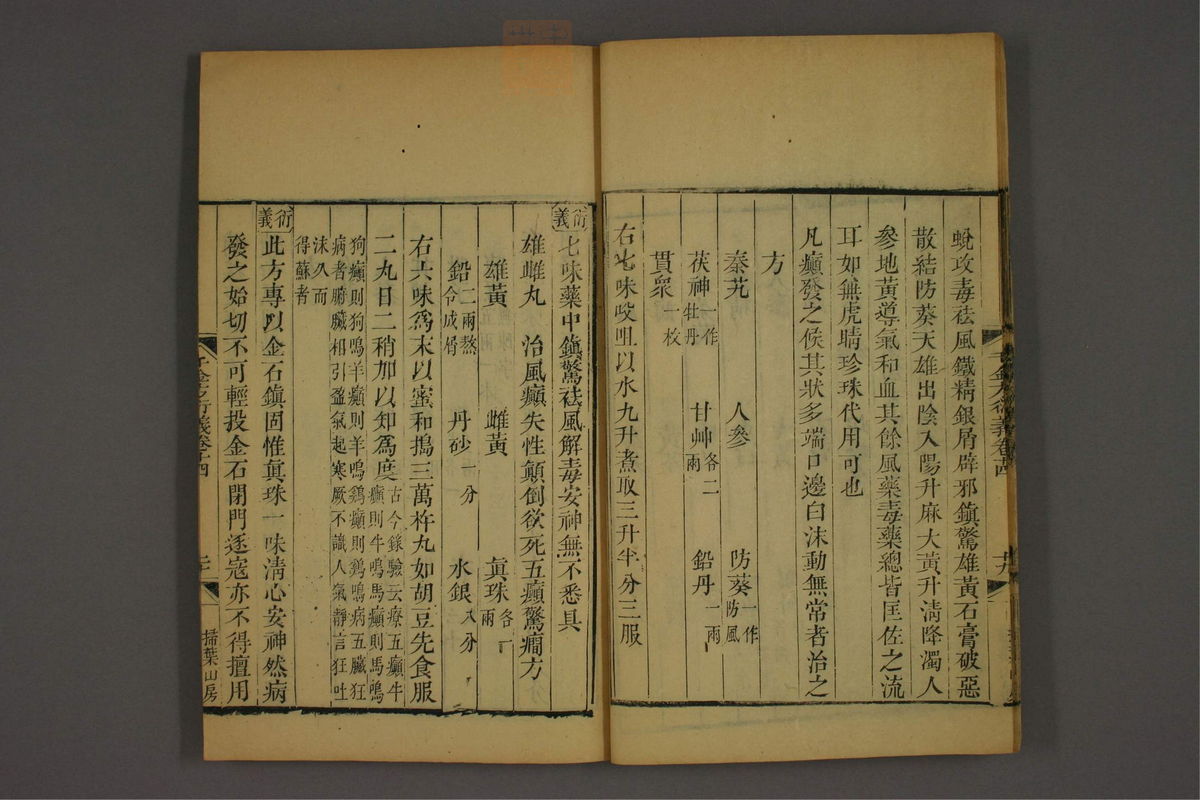 蛻攻毒祛風鐵精銀屑辟邪鎭驚雄黃石膏破惡
散結防葵天雄出陰入陽升麻大黃升淸降濁人
參地黃導氣和血其餘風藥毒藥總皆匡佐之流
耳如無虎睛珍珠代用可也
凡癲發之候其狀多端口邊白沫動無常者治之
方
秦艽 人參 防葵一作防風
茯神一作牡丹 甘艸各二兩 鉛丹一兩
貫衆一枚
右七味㕮咀以水九升煮取三升半分三服
衍義 七味藥中鎭驚祛風解毒安神無不悉具
雄雌丸 治風癲失性顛倒欲死五癲驚癇方
雄黃 雌黃 眞珠各一兩
鉛二兩熬令成屑 丹砂一分 水銀八分
右六味爲末以蜜和搗三萬杵丸如胡豆先食服
二丸日二稍加以知爲度古今錄驗云療五癲牛癲則牛鳴馬癲則馬鳴
狗癲則狗鳴羊癲則羊鳴鷄癲則鷄鳴病五臟狂
病者腑臟相引盈氣起寒厥不識人氣靜言狂吐
沫久而
得蘇者
衍義 此方專以金石鎭固惟眞珠一味淸心安神然病
發之始切不可輕投金石閉門逐寇亦不得擅用
千金方衍義卷十四
掃葉山房